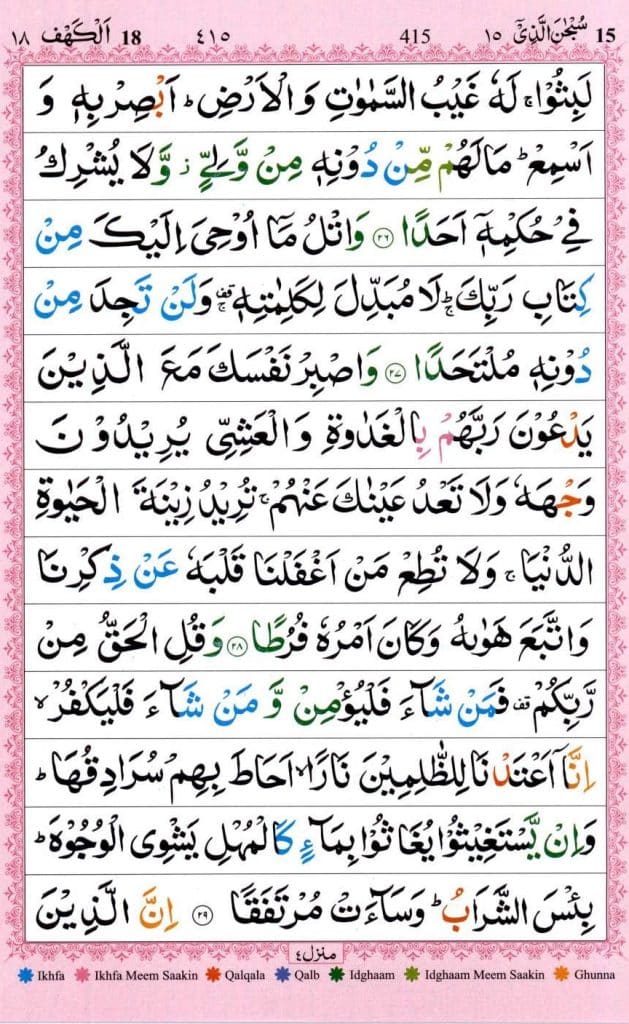 15 سُبْحٰنَ الَّذِیْٓ ١٥ 415 ٤١٥ 18 اَلْکَهْف ١٨
لَبِثُوْا ۚ لَهٗ غَیْبُ السَّمٰوٰتِ وَالْاَرْضِ ؕ اَبْصِرْ بِهٖ وَ
اَسْمِعْ ؕ مَا لَهُمْ مِّنْ دُوْنِهٖ مِنْ وَّلِیٍّ ؗ وَّلَا یُشْرِكُ
فِیْ حُكْمِهٖۤ اَحَدًا ﴿۲۶﴾ وَاتْلُ مَاۤ اُوْحِیَ اِلَیْكَ مِنْ
كِتَابِ رَبِّكَ ؕۚ لَا مُبَدِّلَ لِكَلِمٰتِهٖ ۫ۚ وَلَنْ تَجِدَ مِنْ
دُوْنِهٖ مُلْتَحَدًا ﴿۲۷﴾ وَاصْبِرْ نَفْسَكَ مَعَ الَّذِیْنَ
یَدْعُوْنَ رَبَّهُمْ بِالْغَدٰوةِ وَالْعَشِیِّ یُرِیْدُوْنَ
وَجْهَهٗ وَلَا تَعْدُ عَیْنٰكَ عَنْهُمْ ۚ تُرِیْدُ زِیْنَةَ الْحَیٰوةِ
الدُّنْیَا ۚ وَلَا تُطِعْ مَنْ اَغْفَلْنَا قَلْبَهٗ عَنْ ذِكْرِنَا
وَاتَّبَعَ هَوٰىهُ وَكَانَ اَمْرُهٗ فُرُطًا ﴿۲۸﴾ وَقُلِ الْحَقُّ مِنْ
رَّبِّكُمْ ۫ فَمَنْ شَآءَ فَلْیُؤْمِنْ وَّمَنْ شَآءَ فَلْیَكْفُرْ ۙ
اِنَّاۤ اَعْتَدْنَا لِلظّٰلِمِیْنَ نَارًا ۙ اَحَاطَ بِهِمْ سُرَادِقُهَا ؕ
وَاِنْ یَّسْتَغِیْثُوْا یُغَاثُوْا بِمَآءٍ كَالْمُهْلِ یَشْوِی الْوُجُوْهَ ؕ
بِئْسَ الشَّرَابُ ؕ وَسَآءَتْ مُرْتَفَقًا ﴿۲۹﴾ اِنَّ الَّذِیْنَ
منزل ٤
Ikhfa Ikhfa Meem Saakin Qalqala Qalb Idghaam Idghaam Meem Saakin Ghunna